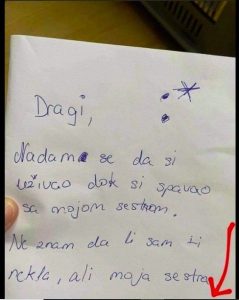 Dragi,
Nadam se da si
uživao dok si spavao
sa mojom sestrom.
Ne znam da li sam ti
rekla, ali moja sestra